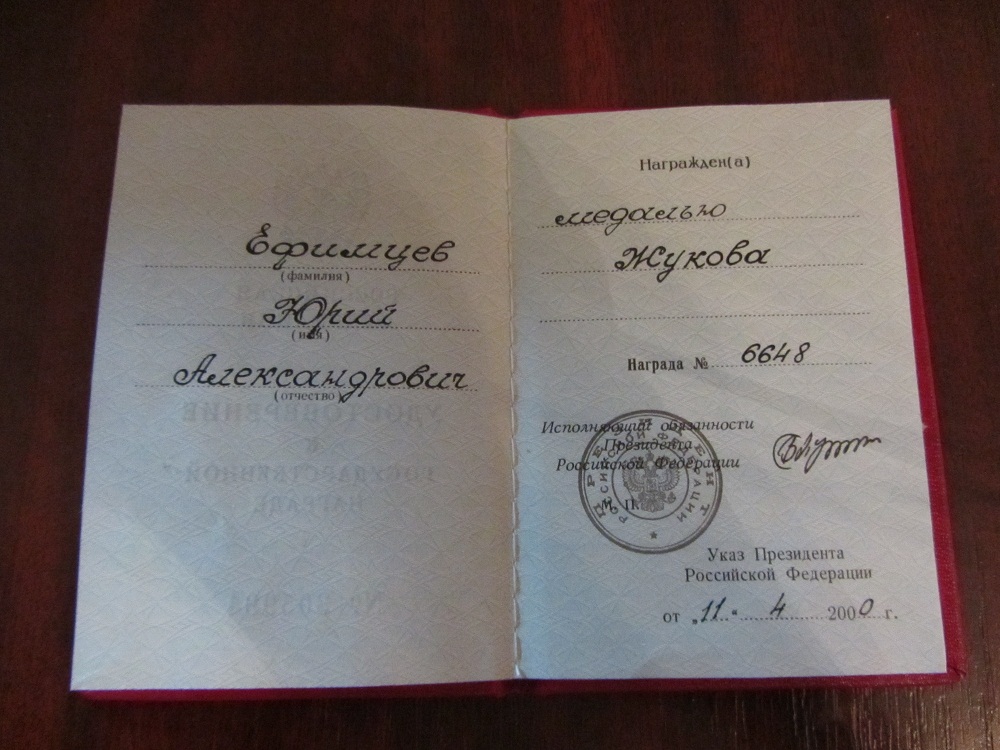 Ефимцев
(фамилия)
Юрий
(имя)
Александрович
(отчество)
Награжден(а)
медалью
Жукова
Награда № 6648
Исполняющий обязанности
Президента
Российской Федерации
М. П.
ПРЕЗИДЕНТ
РОССИЙСКОЙ ФЕДЕРАЦИИ
Указ Президента
Российской Федерации
от „11“ 4 2000 г.